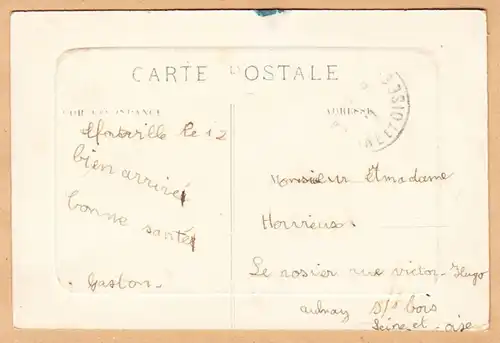 CARTE POSTALE
CORRESPONDANCE
ADRESSE
le 12
bien arrivé
bonne santé
Gaston.
Monsieur et madame
Herrieux.
Le rosier rue victor-Hugo
aulnay s/s bois
Seine-et-oise